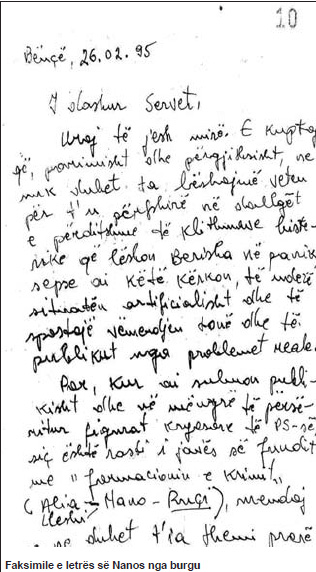 10
Bënçë, 26.02.95
I dashur Servet,
Uroj të jesh mirë. E kuptoj
që, parimisht dhe përgjithsisht, ne
nuk duhet ta lëshojmë veten
për t'u përfshirë në dallgët
e përditshme të klithmave histe-
rike që lëshon Berisha në panik
sepse ai këtë kërkon, të nderë
situatën artificialisht dhe të
spostojë vëmendjen tonë dhe të
publikut nga problemet reale.
Por, kur ai sulmon publi-
kisht dhe në mënyrë të përsë-
ritur figurat kryesore të PS-së
siç është rasti i javës së fundit
me "formacionin e krimit"
(Alia - Nano - Ruçi), mendoj
Lleshi
se duhet t'ia themi prasë
Faksimile e letrës së Nanos nga burgu